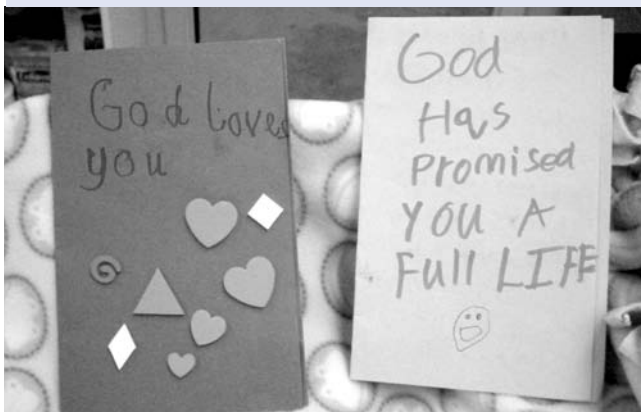 God Loves
you
God
Has
Promised
YOU A
Full LIFE